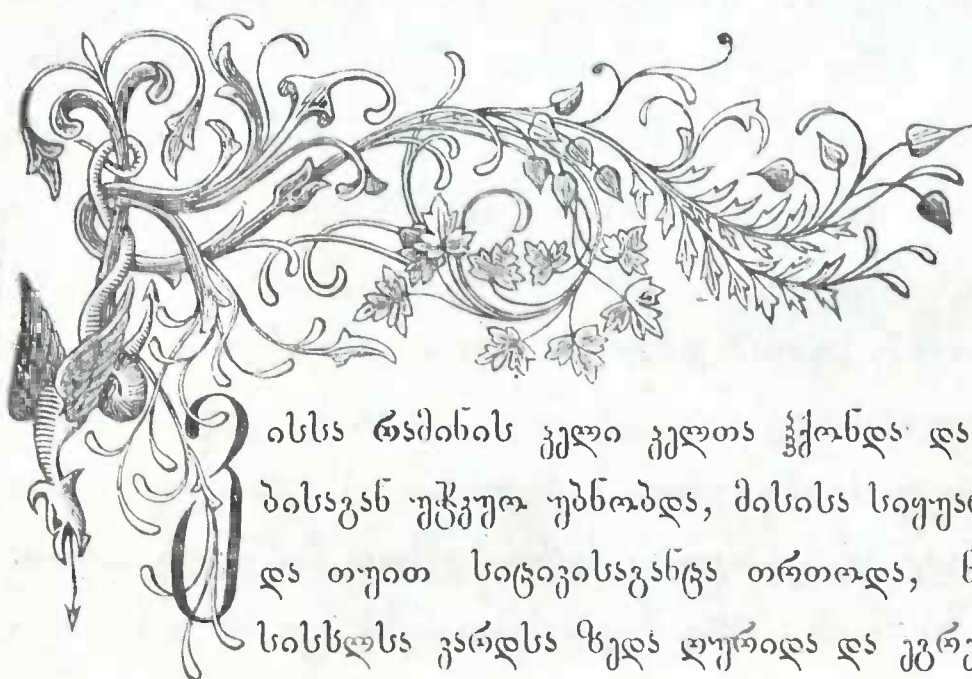 ვისსა რამინის ჴელი ჴელთა ჰქონდა და
ბისაგან უჭკუო უბნობდა, მისისა სიყუა
და თუით სიცივისაგანცა თრთოდა,
სისხლსა ვარდსა ზედა ღურიდა და ეგრე